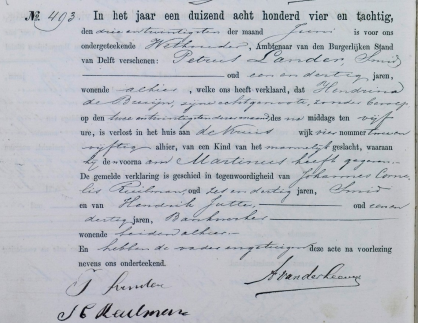 No 493. In het jaar een duizend acht honderd vier en tachtig,
den drie en twintigsten der maand Juni is voor ons
ondergeteekende Wethouder, Ambtenaar van den Burgerlijken Stand
van Delft verschenen: Petrus Lander, Smid
oud een en dertig jaren,
wonende alhier, welke ons heeft verklaard, dat Hendrina
de Bruijn, zijne echtgenoote, zonder beroep
op den twee en twintigsten dezer maand, des na middags ten vijf
ure, is verlost in het huis aan de wijk vier nommer
vijftig alhier, van een Kind van het mannelijk geslacht, waaraan
hij de voorna am Martinus heeft gegeven
De gemelde verklaring is geschied in tegenwoordigheid van Johannes Corne-
lis Reulman, oud zes en dertig jaren, Smid
en van Hendrik Jutte, oud een en
dertig jaren,
wonende beiden alhier
En hebben de vader en getuigen deze acte na voorlezing
nevens ons onderteekend.
A van der Leeuw
J C Reulman